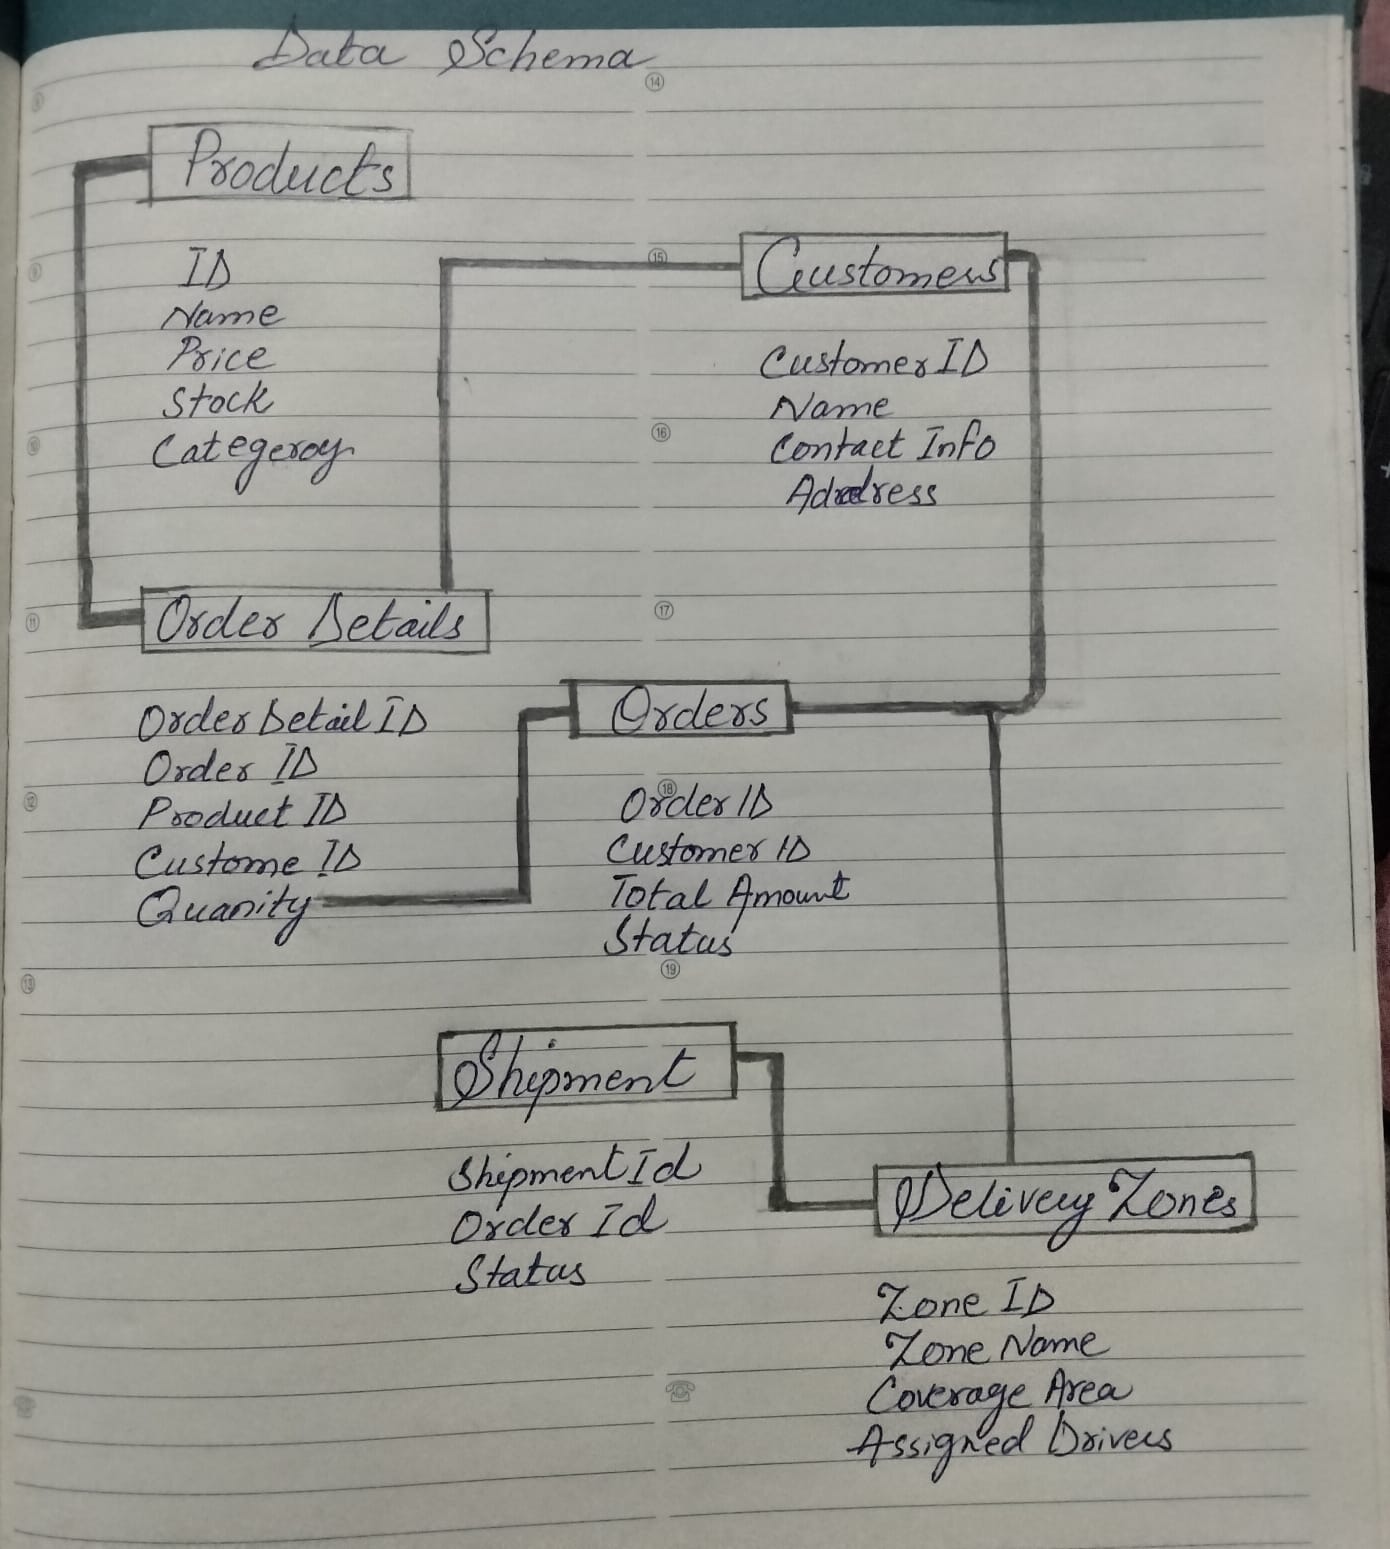 Data Schema
Products
ID
Name
Price
Stock
Categeroy
Customers
Customer ID
Name
Contact Info
Address
Order Details
Order Detail ID
Order ID
Product ID
Custome ID
Quanity
Orders
Order ID
Customer ID
Total Amount
Status
Shipment
Shipment Id
Order Id
Status
Delivery Zones
Zone ID
Zone Name
Coverage Area
Assigned Drivers
8
9
10
11
12
13
14
15
16
17
18
19